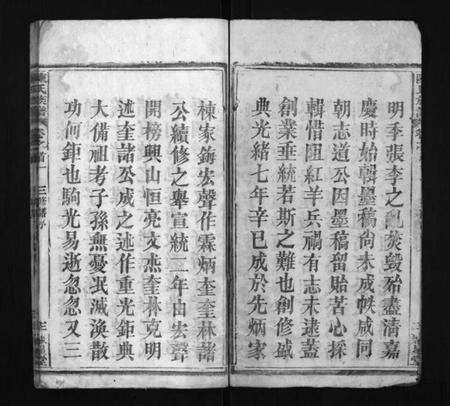 明季張李之亂焚毀殆盡清嘉
慶時始輯墨稿尚未成帙咸同
朝志道公因墨稿留貽苦心採
輯惜阻紅羊兵禍有志未逮蓋
創業垂統若斯之難也創修盛
典光緒七年辛巳成於先炳家
棟家鎔宏聲作霖炳奎奎林諸
公續修之舉宣統二年由宏聲
開榜興山恒亮文燕奎林克明
述奎諸公成之述作重光鉅典
大備祖考子孫無憂泯滅渙散
功何鉅也駒光易逝忽忽又三